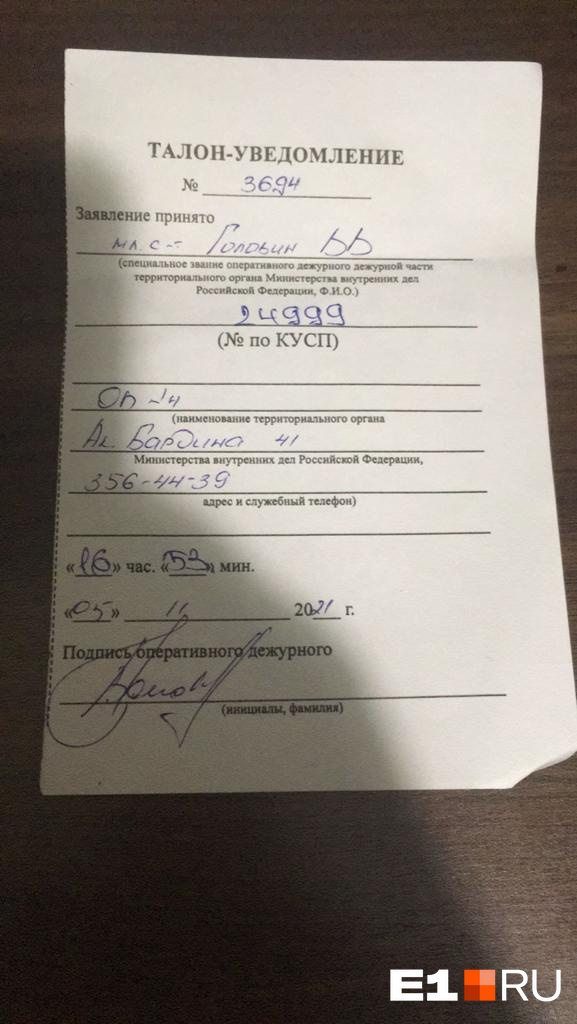 ТАЛОН-УВЕДОМЛЕНИЕ
№ 3694
Заявление принято
мл. с-т Головин ВВ
(специальное звание оперативного дежурного дежурной части
территориального органа Министерства внутренних дел
Российской Федерации, Ф.И.О.)
24999
(№ по КУСП)
ОП-14
(наименование территориального органа
Ак. Бардина 41
Министерства внутренних дел Российской Федерации,
356-44-39
адрес и служебный телефон)
«16» час. «53» мин.
«05» 11 2021 г.
Подпись оперативного дежурного
(инициалы, фамилия)
E1.RU